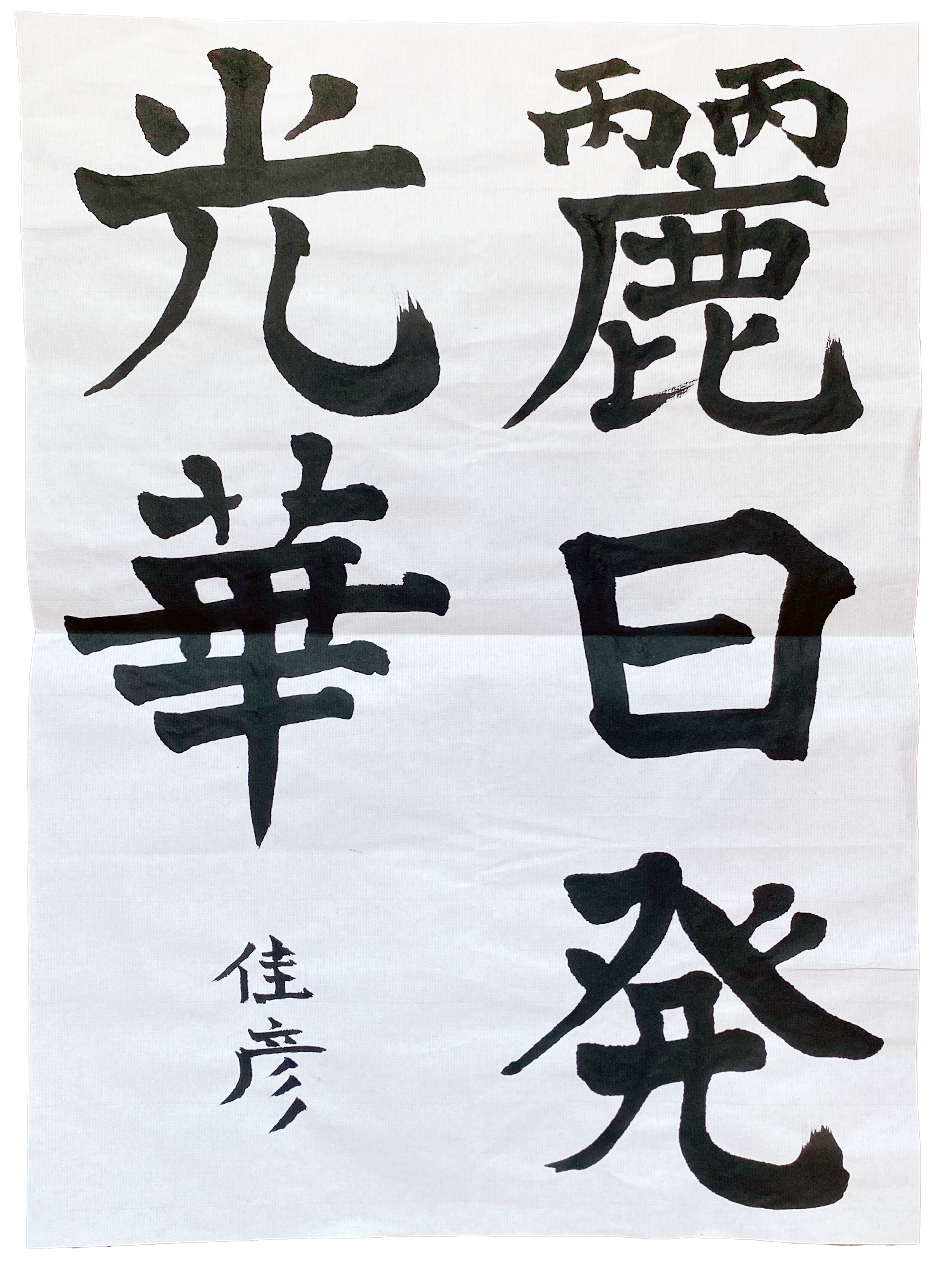 麗日発
光華
佳彦